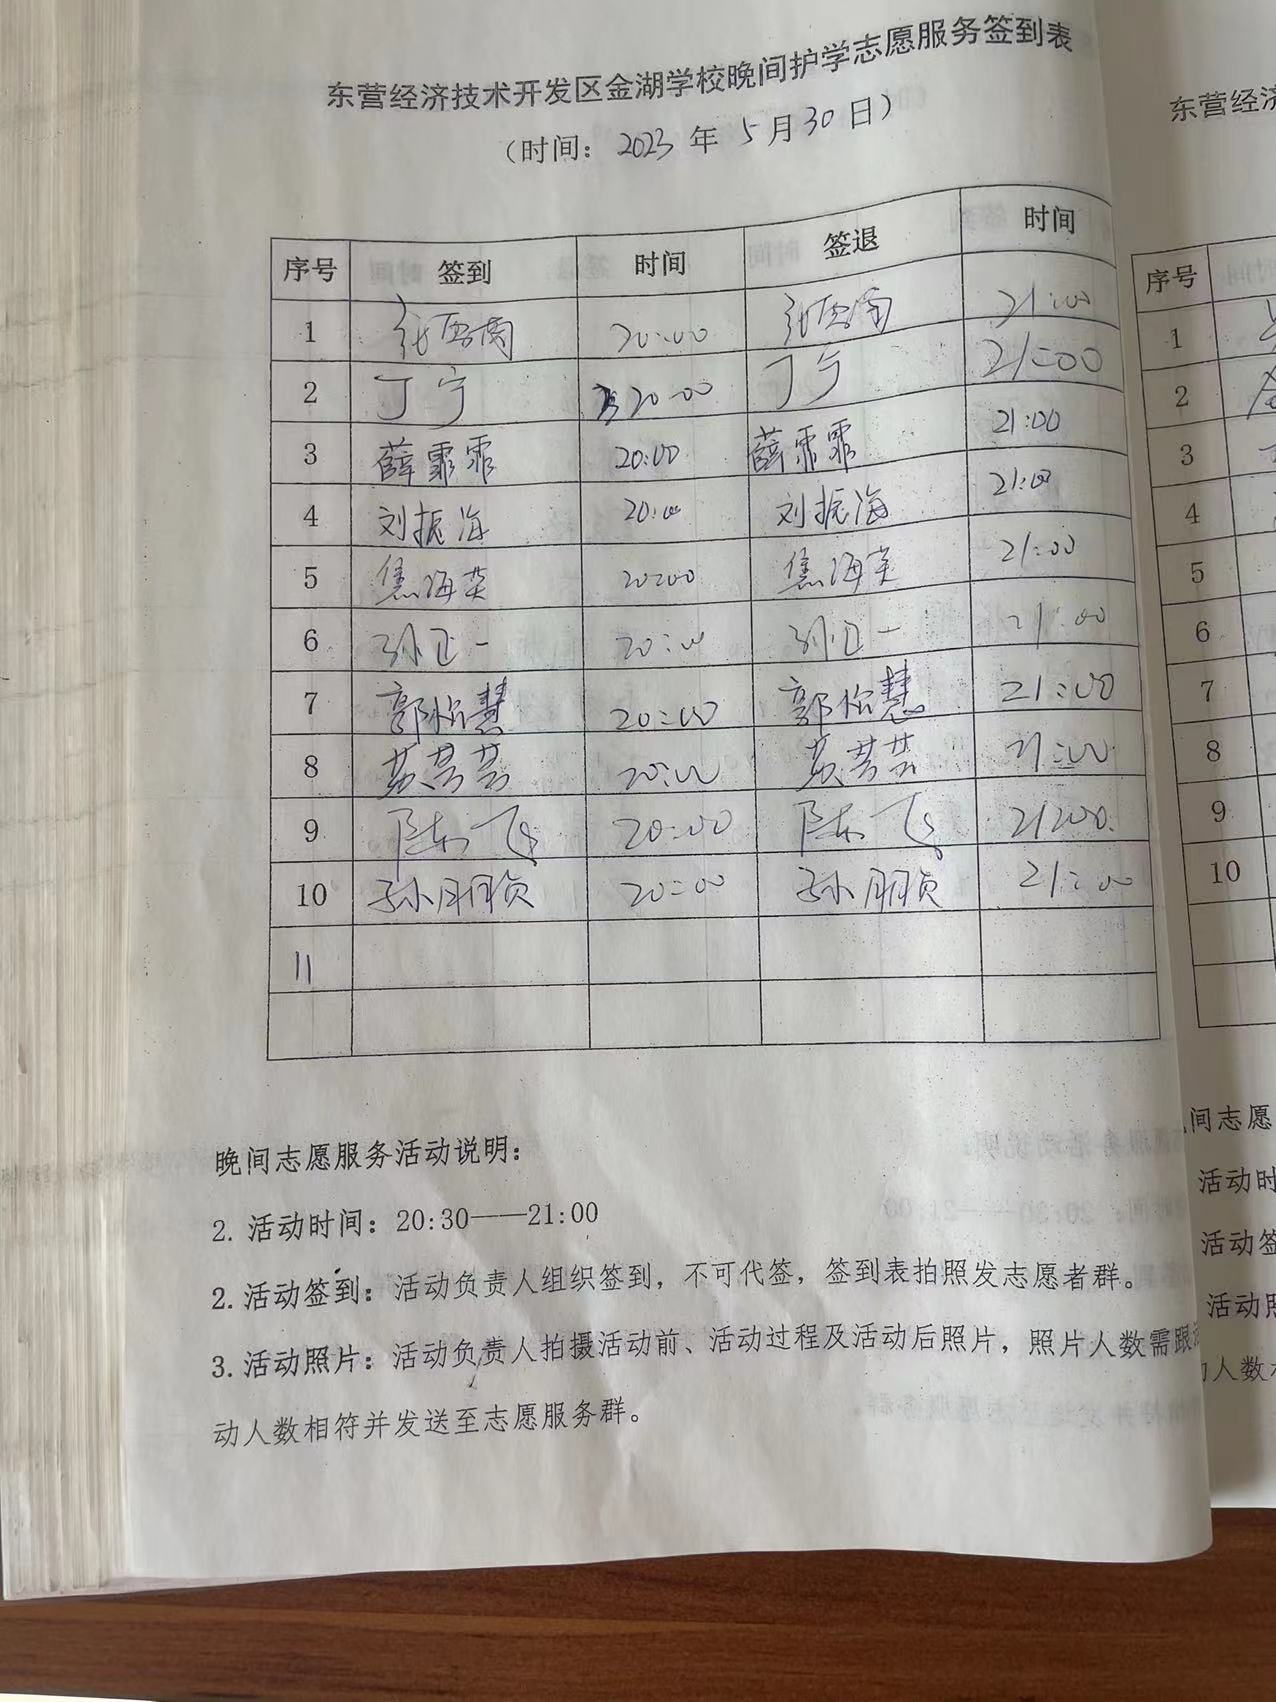 东营经济技术开发区金湖学校晚间护学志愿服务签到表
（时间：2023年5月30日）
序号 签到 时间 签退 时间
1 20:00 21:00
2 丁宁 20:00 丁宁 21:00
3 薛霏霏 20:00 薛霏霏 21:00
4 刘振海 20:00 刘振海 21:00
5 焦海英 20:00 焦海英 21:00
6 孙正一 20:00 孙正一 21:00
7 郭怡慧 20:00 郭怡慧 21:00
8 20:00 21:00
9 陈飞 20:00 陈飞 21:00
10 孙朋贞 20:00 孙朋贞 21:00
11
晚间志愿服务活动说明：
2. 活动时间：20:30——21:00
2. 活动签到：活动负责人组织签到，不可代签，签到表拍照发志愿者群。
3. 活动照片：活动负责人拍摄活动前、活动过程及活动后照片，照片人数需跟
动人数相符并发送至志愿服务群。
东营经济
序号
1
2
3
4
5
6
7
8
9
10
间志愿
活动时
活动签
活动照
人数